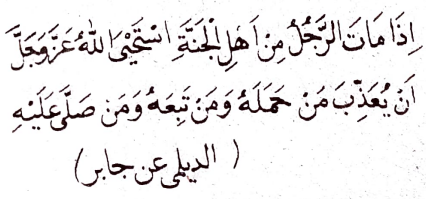 اِذَا مَاتَ الرَّجُلُ مِنْ اَهْلِ الْجَنَّةِ اسْتَحْيَى اللهُ عَزَّ وَجَلَّ
اَنْ يُعَذِّبَ مَنْ حَمَلَهُ وَمَنْ تَبِعَهُ وَمَنْ صَلَّى عَلَيْهِ
( الديلمى عن جابر )